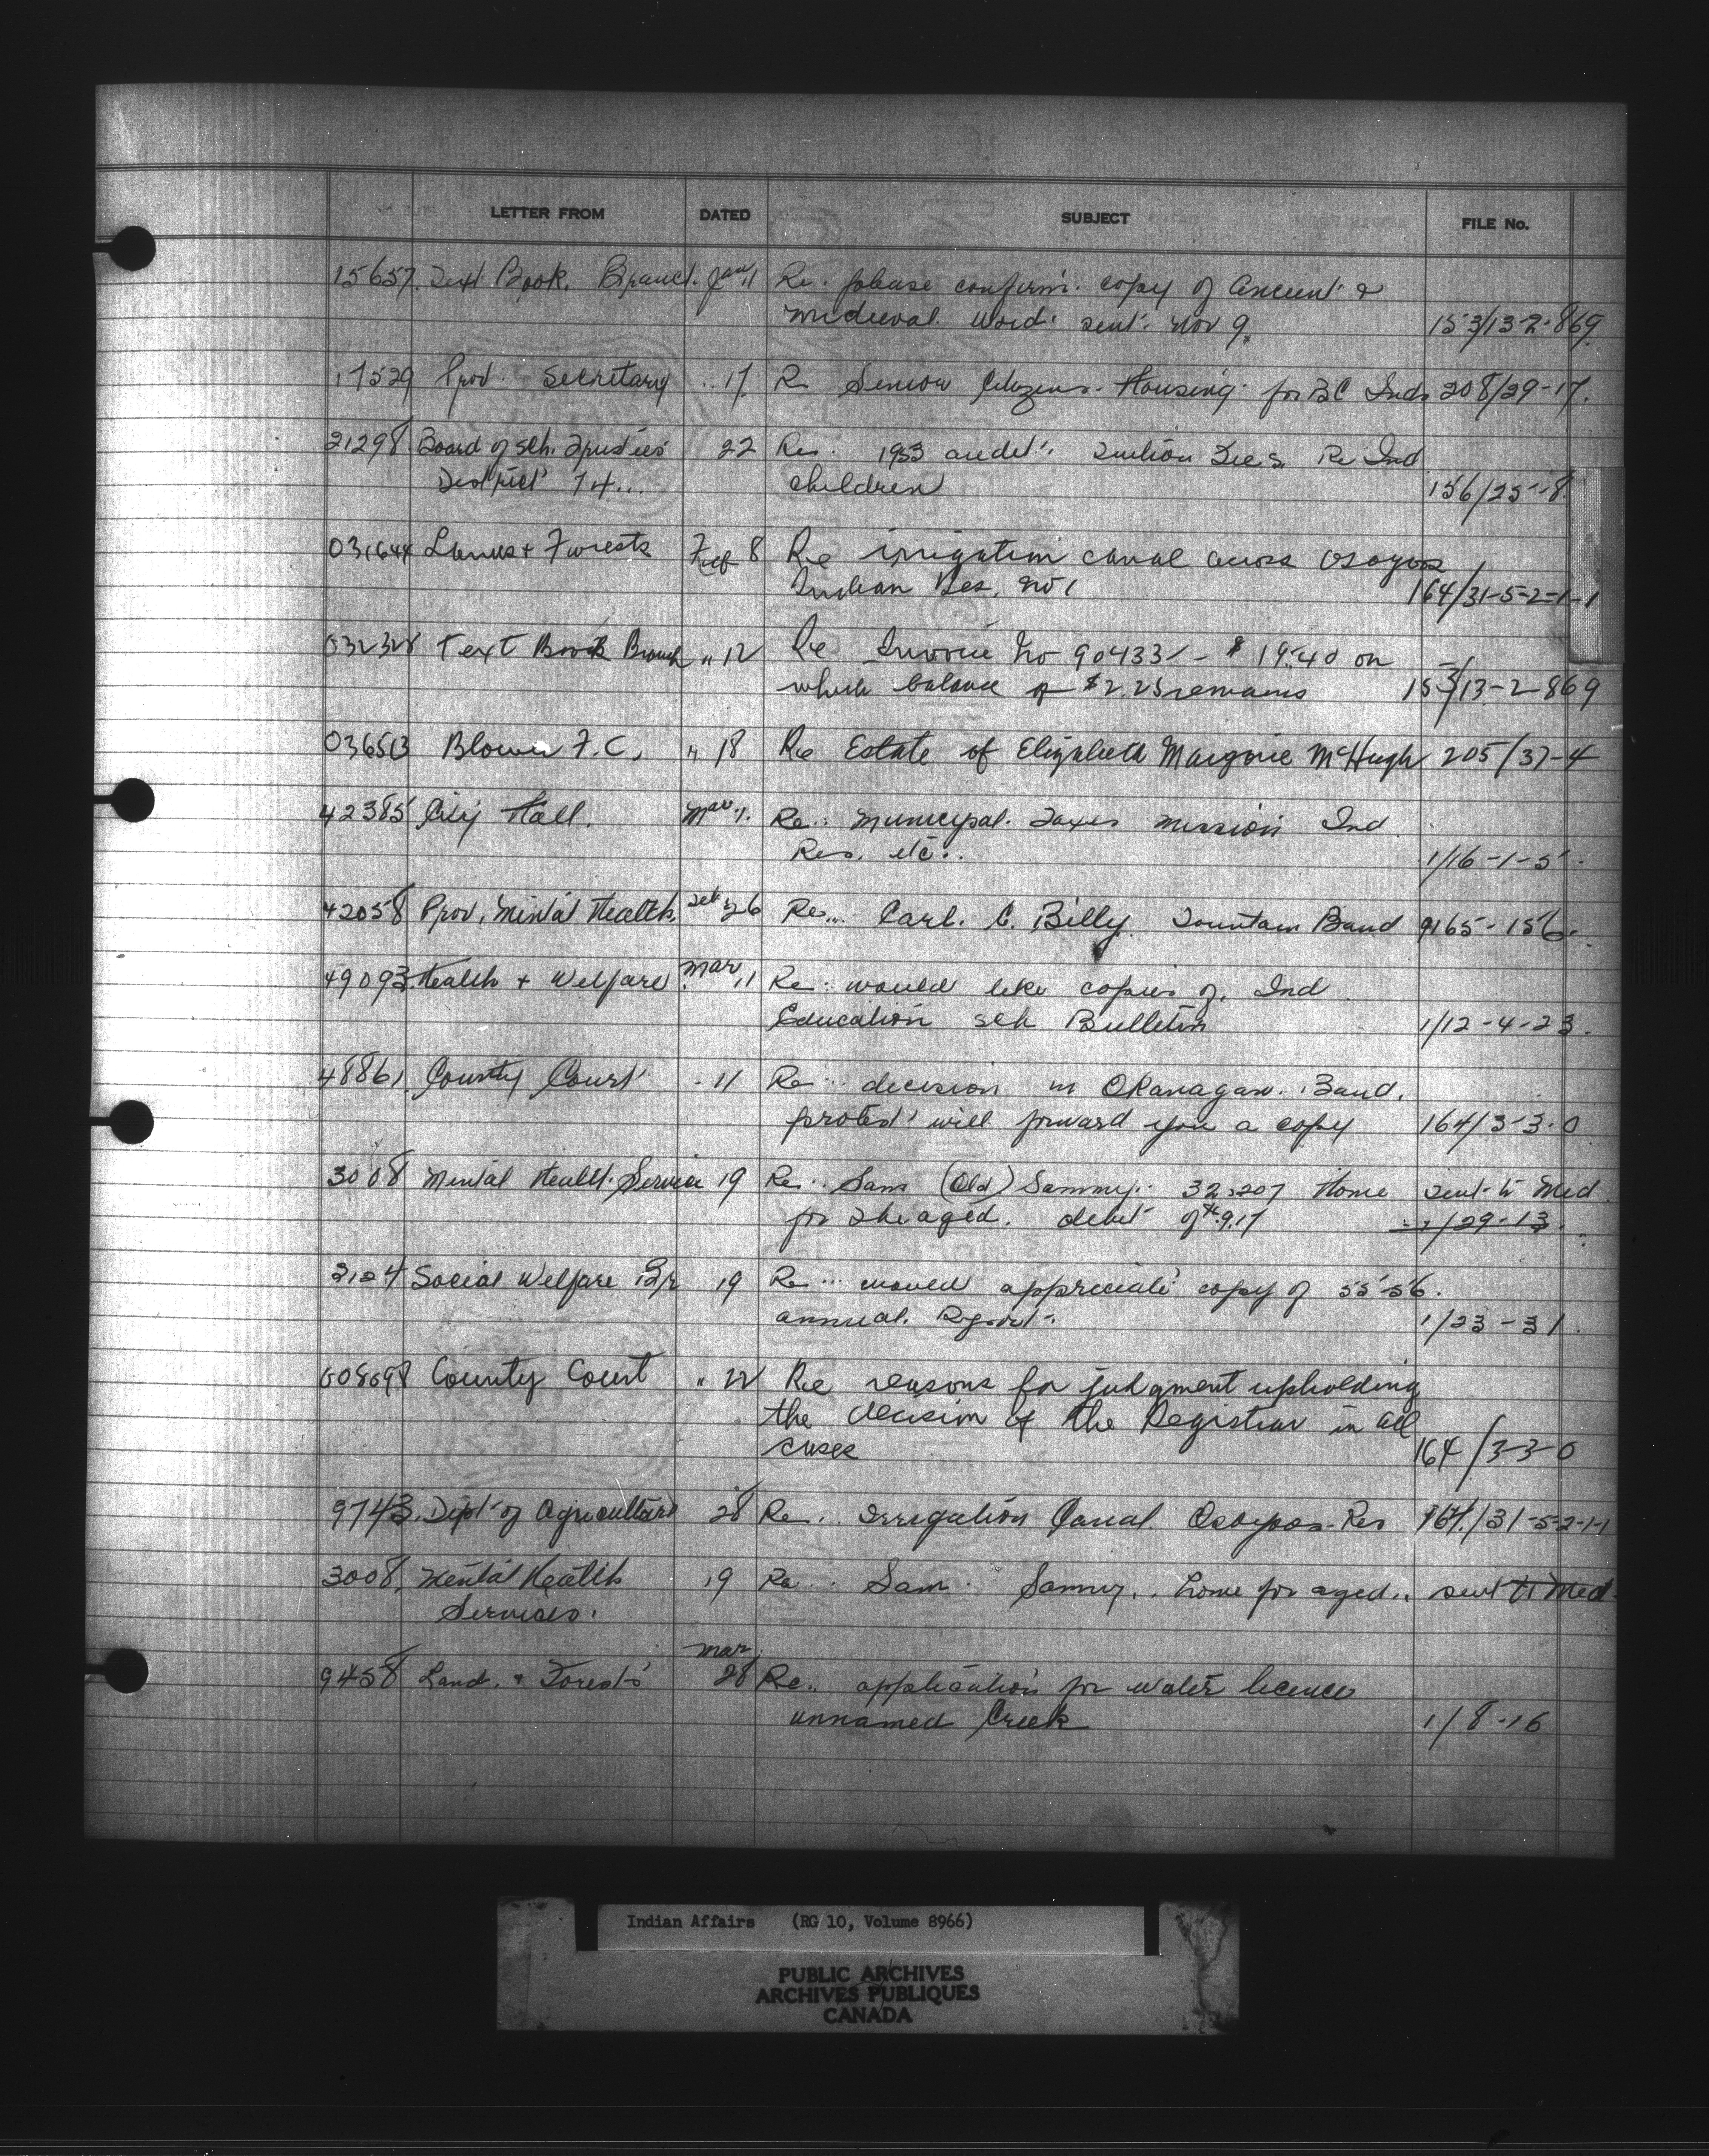 LETTER FROM DATED SUBJECT FILE No.
15657. Text Book. Branch. Jan 11 Re. please confirm. copy of Ancient &
medieval. word. sent. Nov 9. 153/13-2-869.
17529 Prov. Secretary .. 17. Re Senior Citizens. Housing. for BC Inds 208/29-17.
21298. Board of Sch. Trustees 22 Re. 1953 audit. Tuition Fees Re Ind
District 14... children 156/25-8.
031644 Lands & Forests Feb 8 Re irrigation canal across Osoyoos
Indian Res. No 1 164/31-5-2-1-1
032328 Text Book Branch " 12 Re Invoice No 90433 - $19.40 on
which balance of $2.25 remains 153/13-2-869
036513 F.C. " 18 Re Estate of Elizabeth Margorie McHugh 205/37-4
42385 City Hall. Mar 1. Re.. Municipal. Taxes mission Ind.
Res. etc.. 1/16-1-5.
42058 Prov. Mental Health. Feb 26 Re... Carl. C. Billy. Fountain Band 9165-156.
49093. Health & Welfare. Mar 11 Re. would like copies of. Ind.
Education sch Bulletin 1/12-4-23.
48861. County Court - 11 Re... decision in Okanagan. Band.
protest will forward you a copy 164/3-3.0
3008 Mental Health. Service 19 Re.. Sam (Old) Sammy. 32.207 Home sent to Med.
for the aged. debt of $9.17 /29-13.
3124 Social Welfare Br 19 Re... would appreciate copy of 55-56.
annual. Report. 1/23-31.
008698 County Court " 22 Re reasons for judgment upholding
the decision of the Registrar in all
cases 164/3-3-0
9743. Dept of Agriculture 28 Re.. Irrigation Canal. Osoyoos Res 164/31-5-2-1-1
3008. Mental Health 19 Re.. Sam. Sammy.. home for aged.. sent to Med.
Services.
Mar.
9458 Land. & Forests 28 Re.. application for water licence
unnamed Creek 1/8-16
Indian Affairs (RG 10, Volume 8966)
PUBLIC ARCHIVES
ARCHIVES PUBLIQUES
CANADA